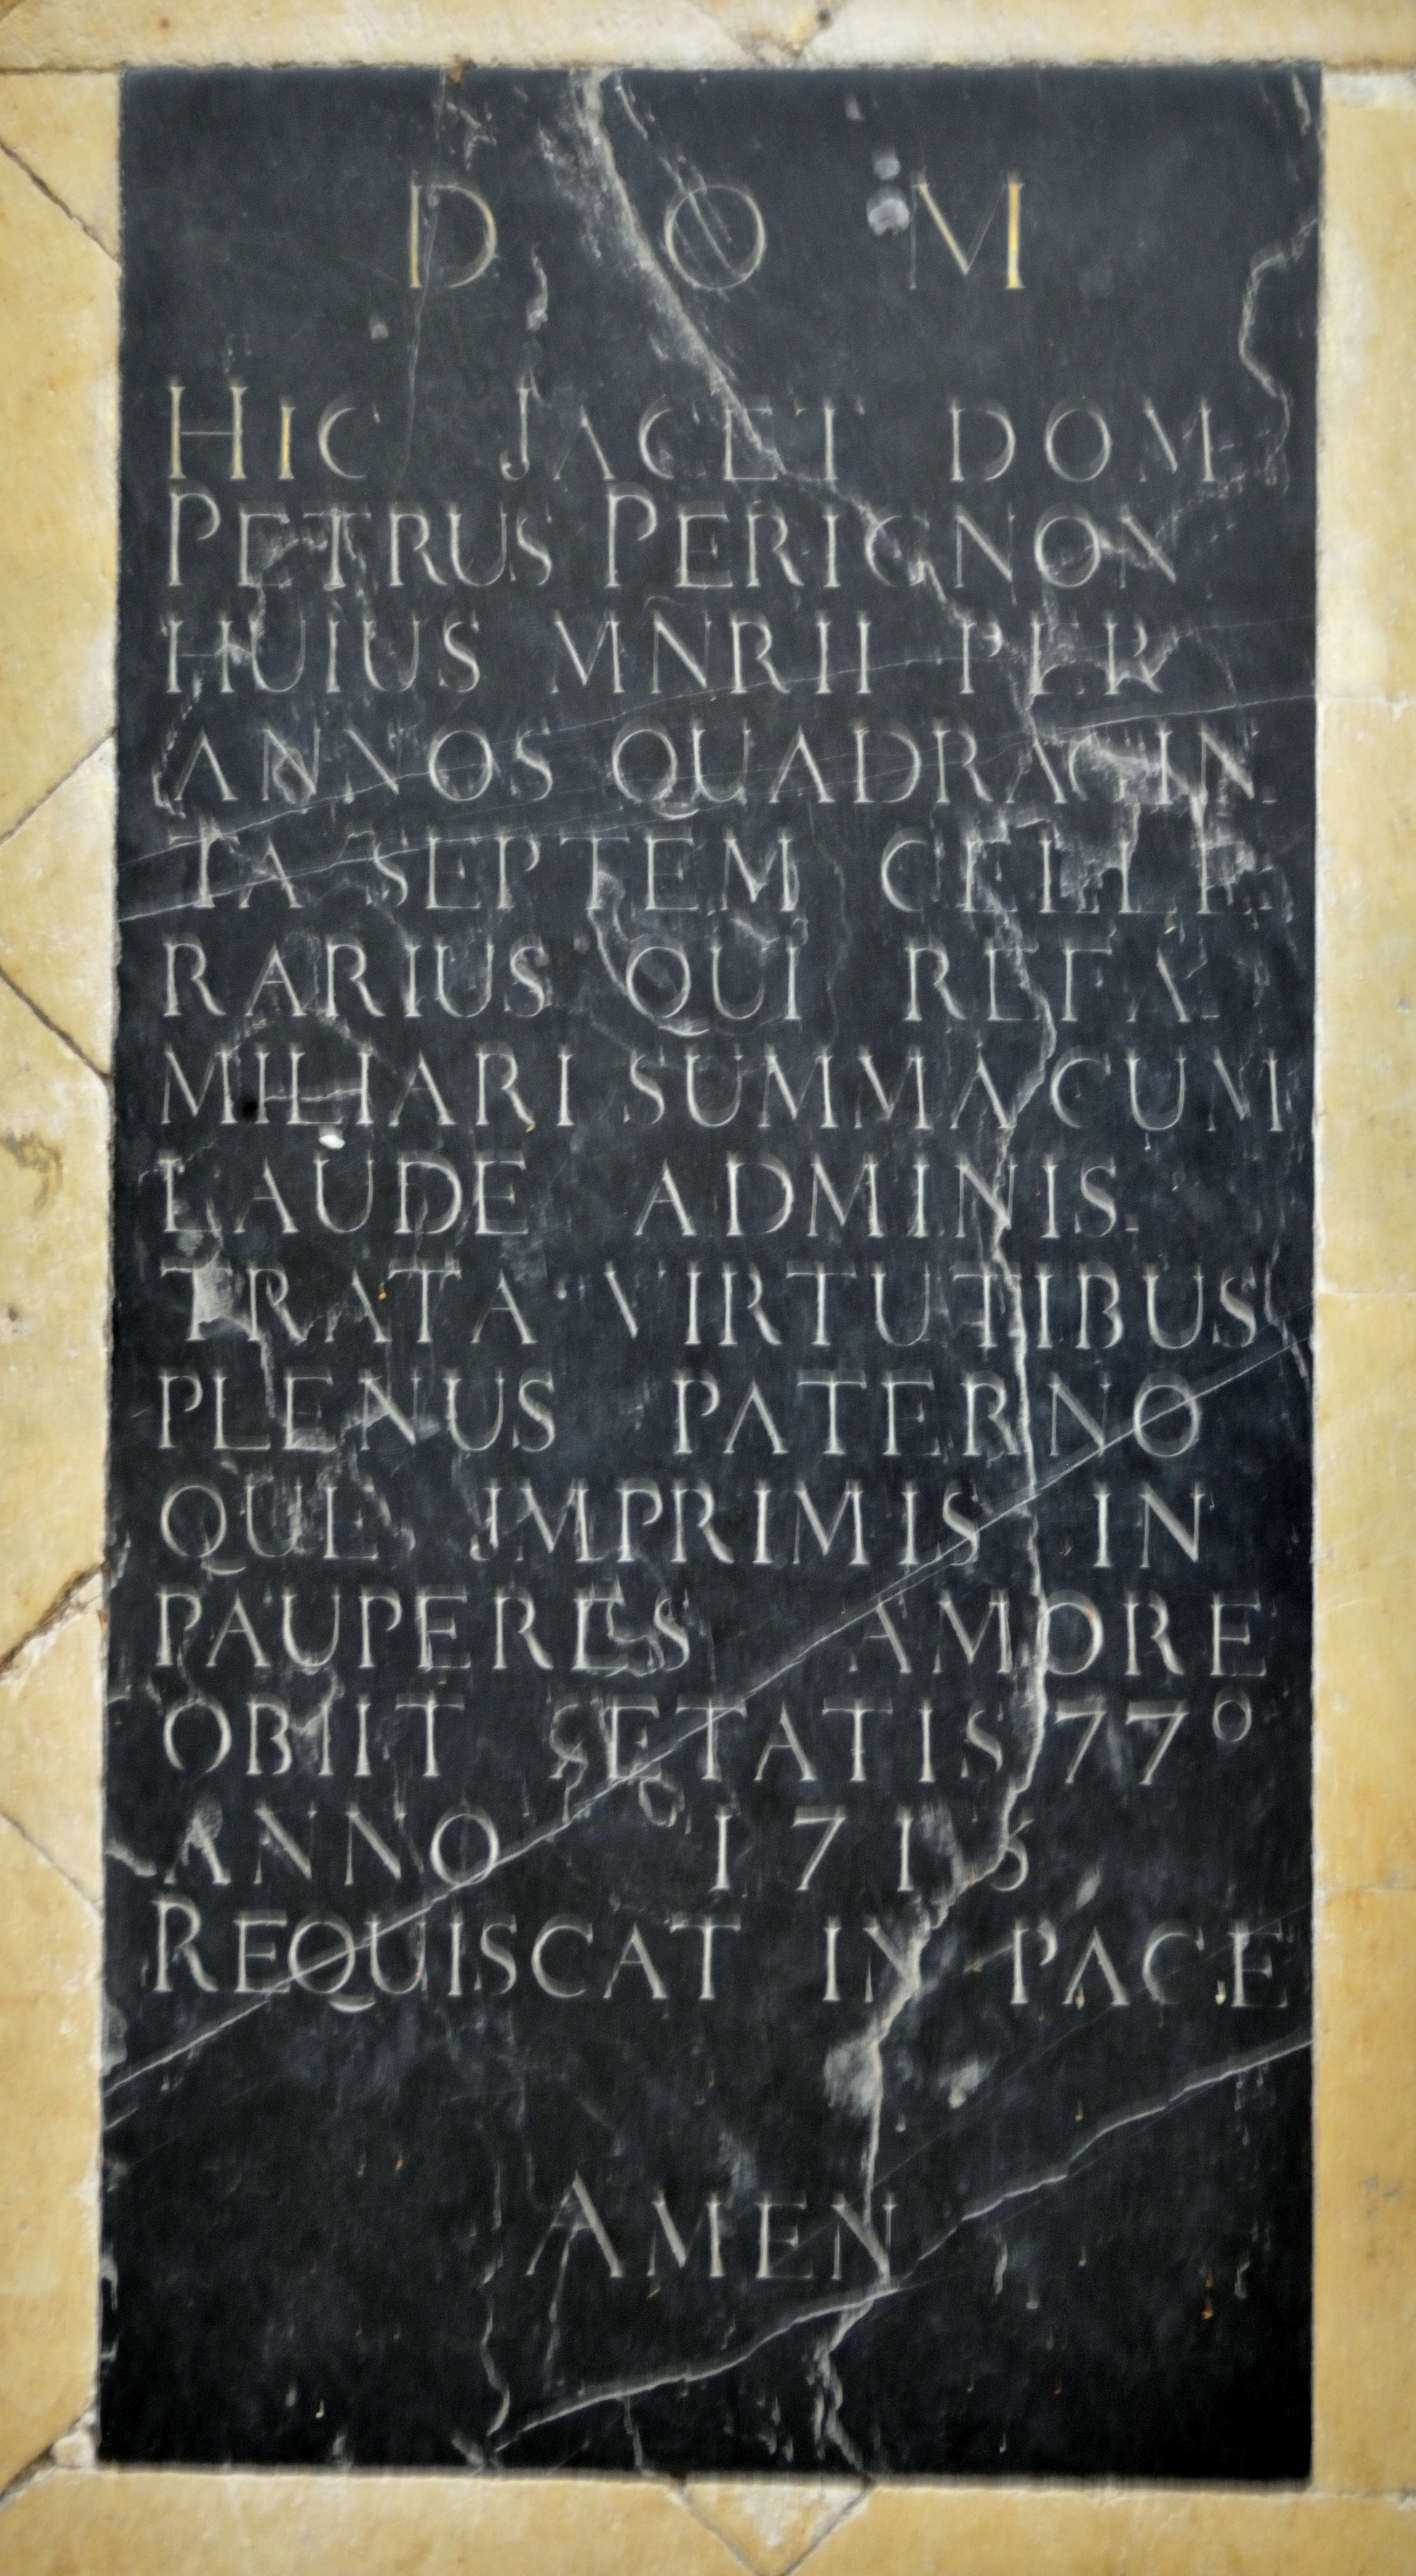 D O M
HIC JACET DOM
PETRUS PERIGNON
HUIUS MÑRII PER
ANNOS QUADRAGIN-
TA SEPTEM CELLE-
RARIUS QUI RE FA-
MILIARI SUMMA CUM
LAUDE ADMINIS-
TRATA VIRTUTIBUS
PLENUS PATERNO
QUE JMPRIMIS IN
PAUPERES AMORE
OBIIT ÆTATIS 77°
ANNO 1715
REQUISCAT IN PACE
AMEN